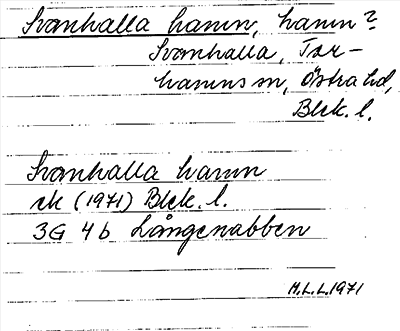 Svanhalla hamn, hamn?
Svanhalla, Tor-
hamns sn, Östra hd,
Blek. l.
Svanhalla hamn
ek (1971) Blek. l.
3G 4b Långenabben
M.L.L. 1971